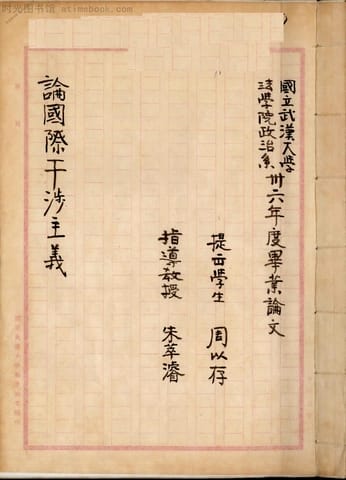 时光图书馆 atimebook.com
國立武漢大學
法學院政治系
卅六年度畢業論文
提出學生 周以存
指導教授 朱萃濬
論國際干涉主義